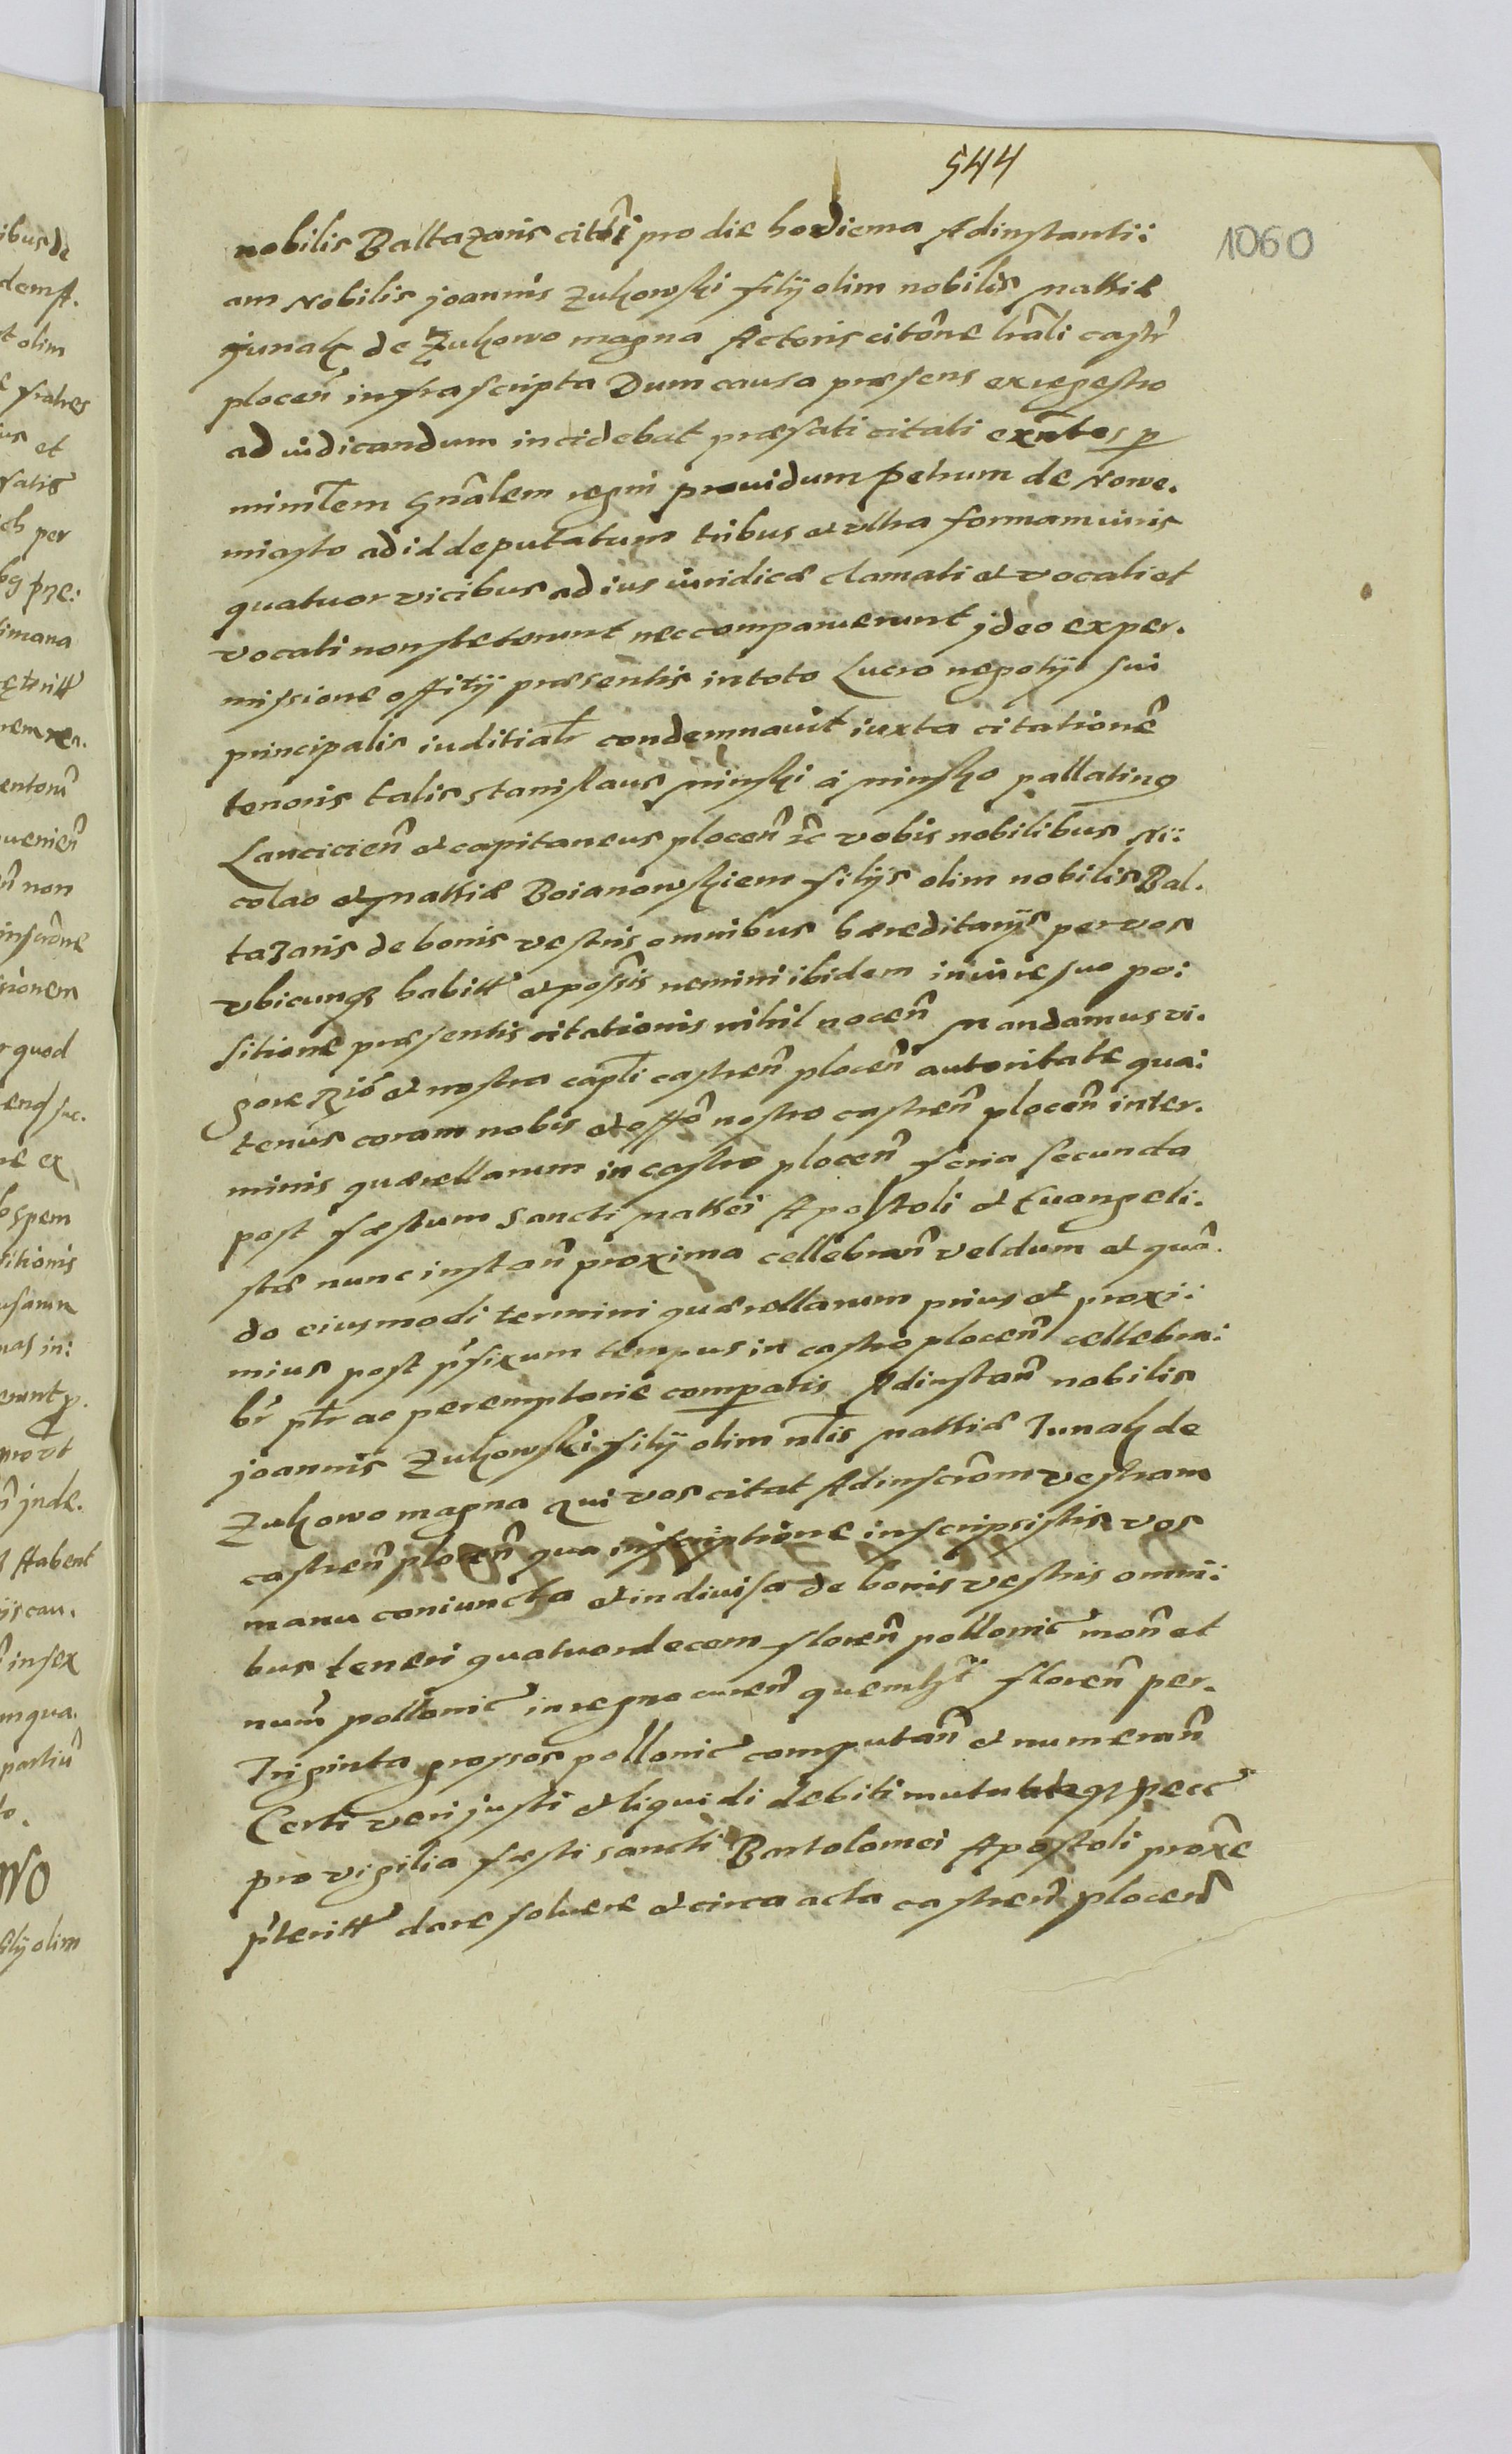 544
1060
nobilis Baltazaris citati pro die hodierna Ad instanti:
am Nobilis joannis Zukowski filij olim nobilis Mathiæ
Junak de Zukowo magna Actoris citõne lrãli castr̃
plocen̄ infrascripta Dum causa præsens ex regestro
ad iudicandum incidebat præfati citati exn̄tes p
minrlem gnãlem regni prouidum Petrum de Nowe.
miasto ad id deputatum tribus et vltra formam iuris
quatuor vicibus ad ius iuridicæ clamati et vocati et
vocati non steterunt nec comparuerunt jdeo ex per.
missione offitij præsentis in toto Lucro negotij sui
principalis iuditialr̃ condemnauit iuxta citationē
tenoris talis Stanislaus Minski á Minsko pallatinꝰ
Lancicien̄ et capitaneus plocen̄ ꝛc̃ vobis nobilibus Ni:
colao et Mathiæ Boianowskiem filijs olim nobilis Bal.
tazaris de bonis vestris omnibus hæreditarijs per vos
vbicunqꝫ habitt̃ et poss̃is nemini ibidem in iure suo po:
sitione præsentis citationis nihil nocen̄ Mandamus ri.
gore Rĩo et nostra capli castren̄ plocen̄ autoritate qua:
tenus coram nobis et offõ nostro castren̄ plocen̄ in ter.
minis quærellarum in castro plocen̄ feria secunda
post fæstum Sancti Mathei Apostoli et Euangeli.
stæ nunc instan̄ proxima cellebran̄ vel dum et quã.
do eiusmodi termini quærellarum prius et proxi:
mius post p̃fixum tempus in castro plocen̄ cellebra:
br̃ ptr̃ ac peremptorie comparatis Ad instan̄ nobilis
joannis Zukowski filij olim nlis Mathiæ Junak de
Zukowo magna Qui vos citat Ad inscrõm vestram
castren̄ plocen̄ qua inscriptione inscripsistis vos
manu coniuncta et indiuisa de bonis vestris omni:
bus teneri quatuordecem floren̄ pollonic̃ mon̄ et
num̃ pollonic̃ in regno curen̄ quemlꝫt floren̄ per.
Triginta grossos pollonic̃ computan̄ et numeran̄
Certi veri justi et liquidi debiti mutuatæqꝫ pecc̃
pro vigilia fæsti sancti Bartolomei Apostoli proxẽ
p̃teritt̃ dare soluere et circa acta castren̄ plocen̄